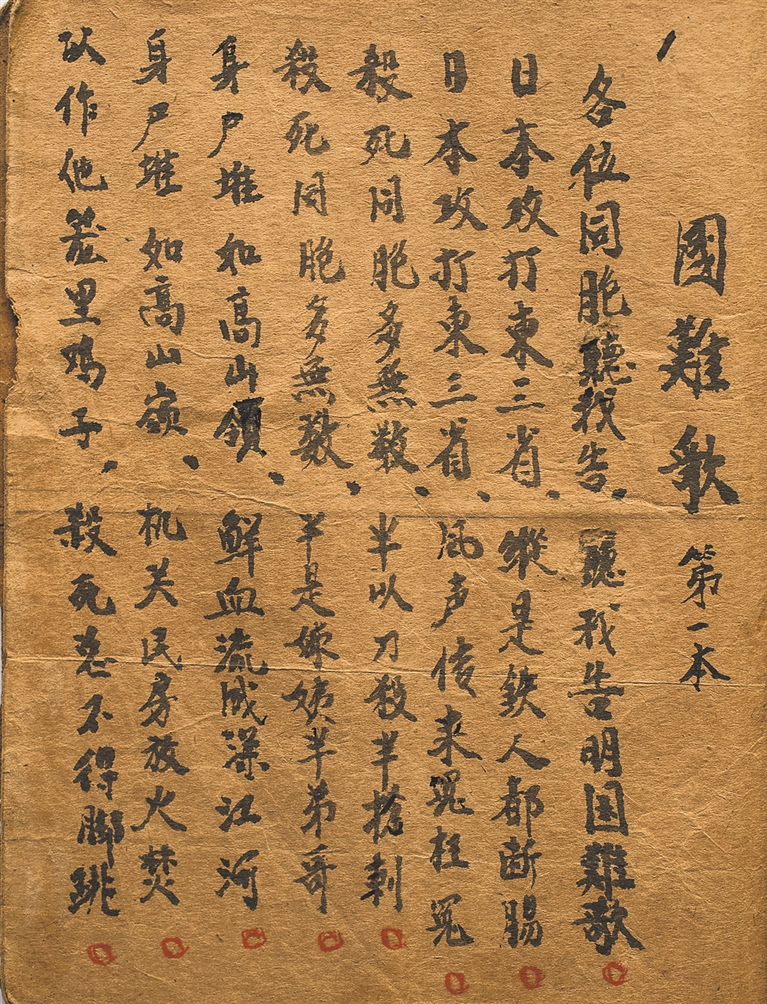 國難歌 第一本
各位同胞聽我告、聽我告明国難歌
日本攻打東三省、縱是鉄人都断腸
日本攻打東三省、風声傳来冤枉冤
殺死同胞多無数、半以刀殺半搶刺
殺死同胞多無数、半是嫂姨半弟哥
身尸堆和高山領、鮮血流成深江河
身尸堆如高山嶺、机关民房放火焚
以作他笼里鸡子、殺死总不得脚跳